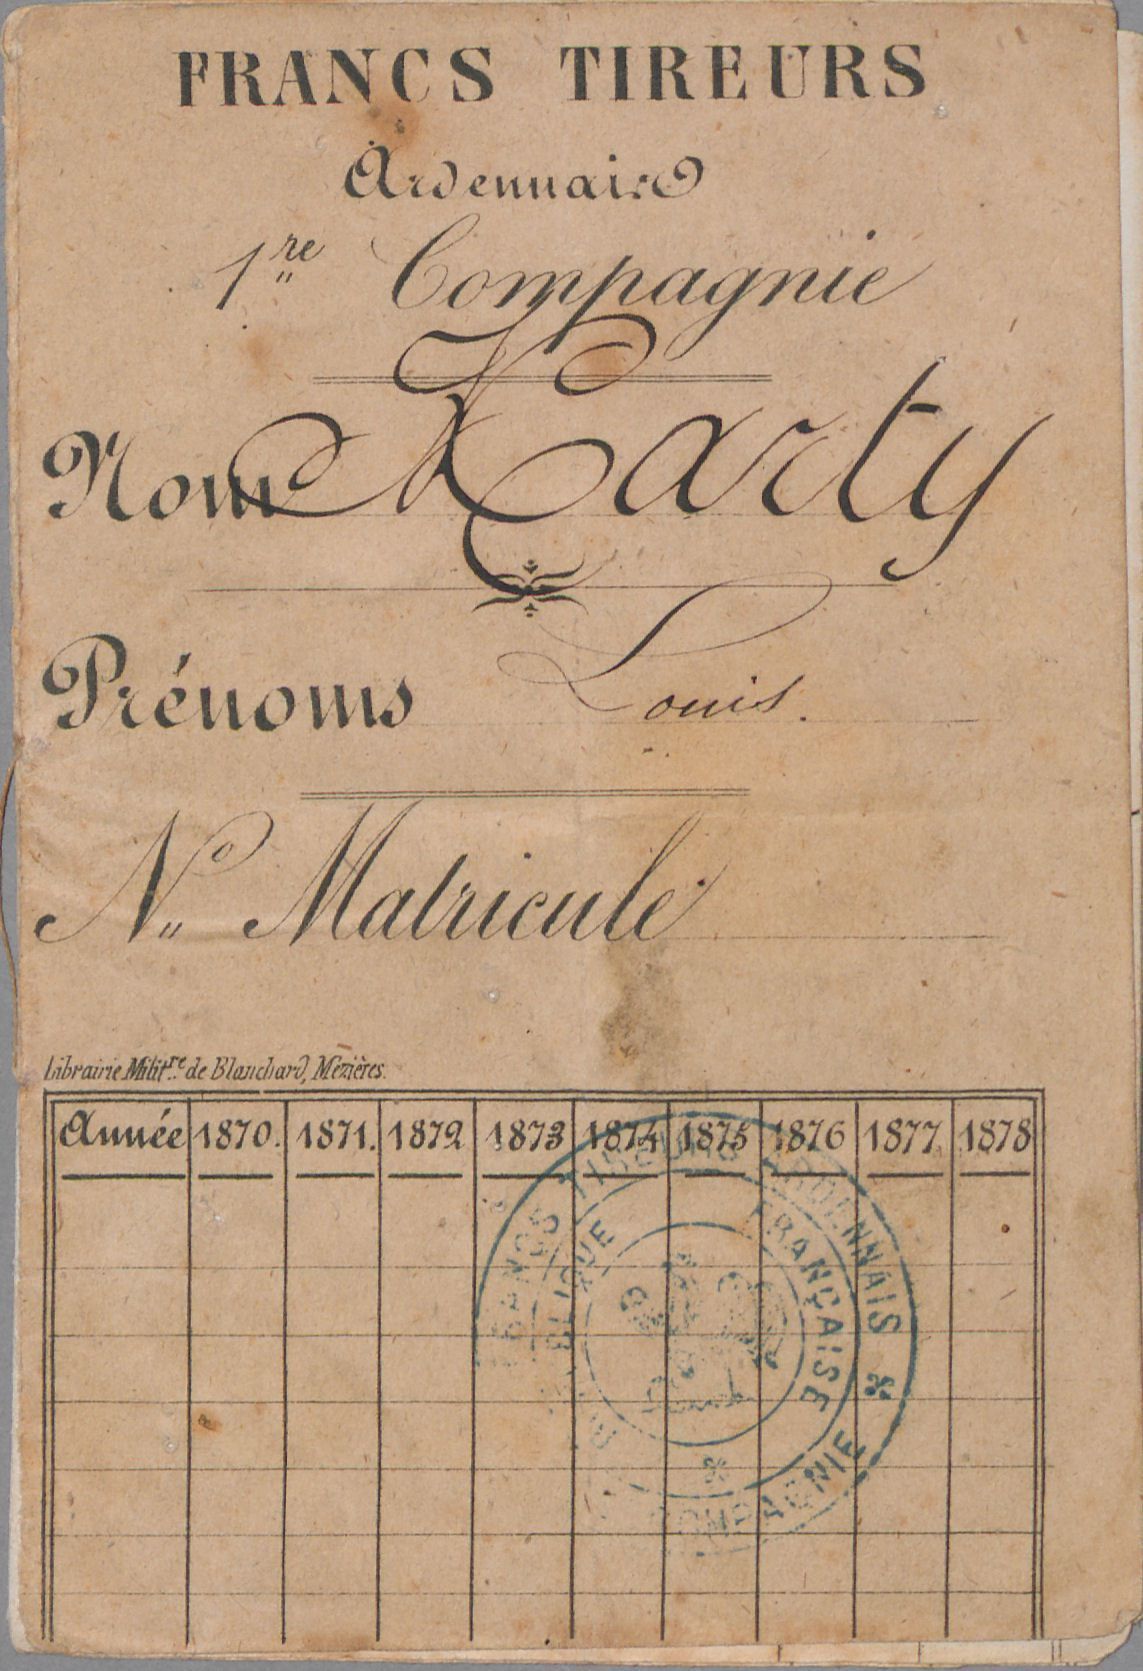 FRANCS TIREURS
Ardennais
1re Compagnie
Nom Karty
Prénoms Louis.
No Matricule
Librairie Militre de Blanchard, Mézières.
Année 1870. 1871. 1872 1873 1874 1875 1876 1877 1878
FRANCS TIREURS ARDENNAIS * COMPAGNIE
FRANÇAISE *